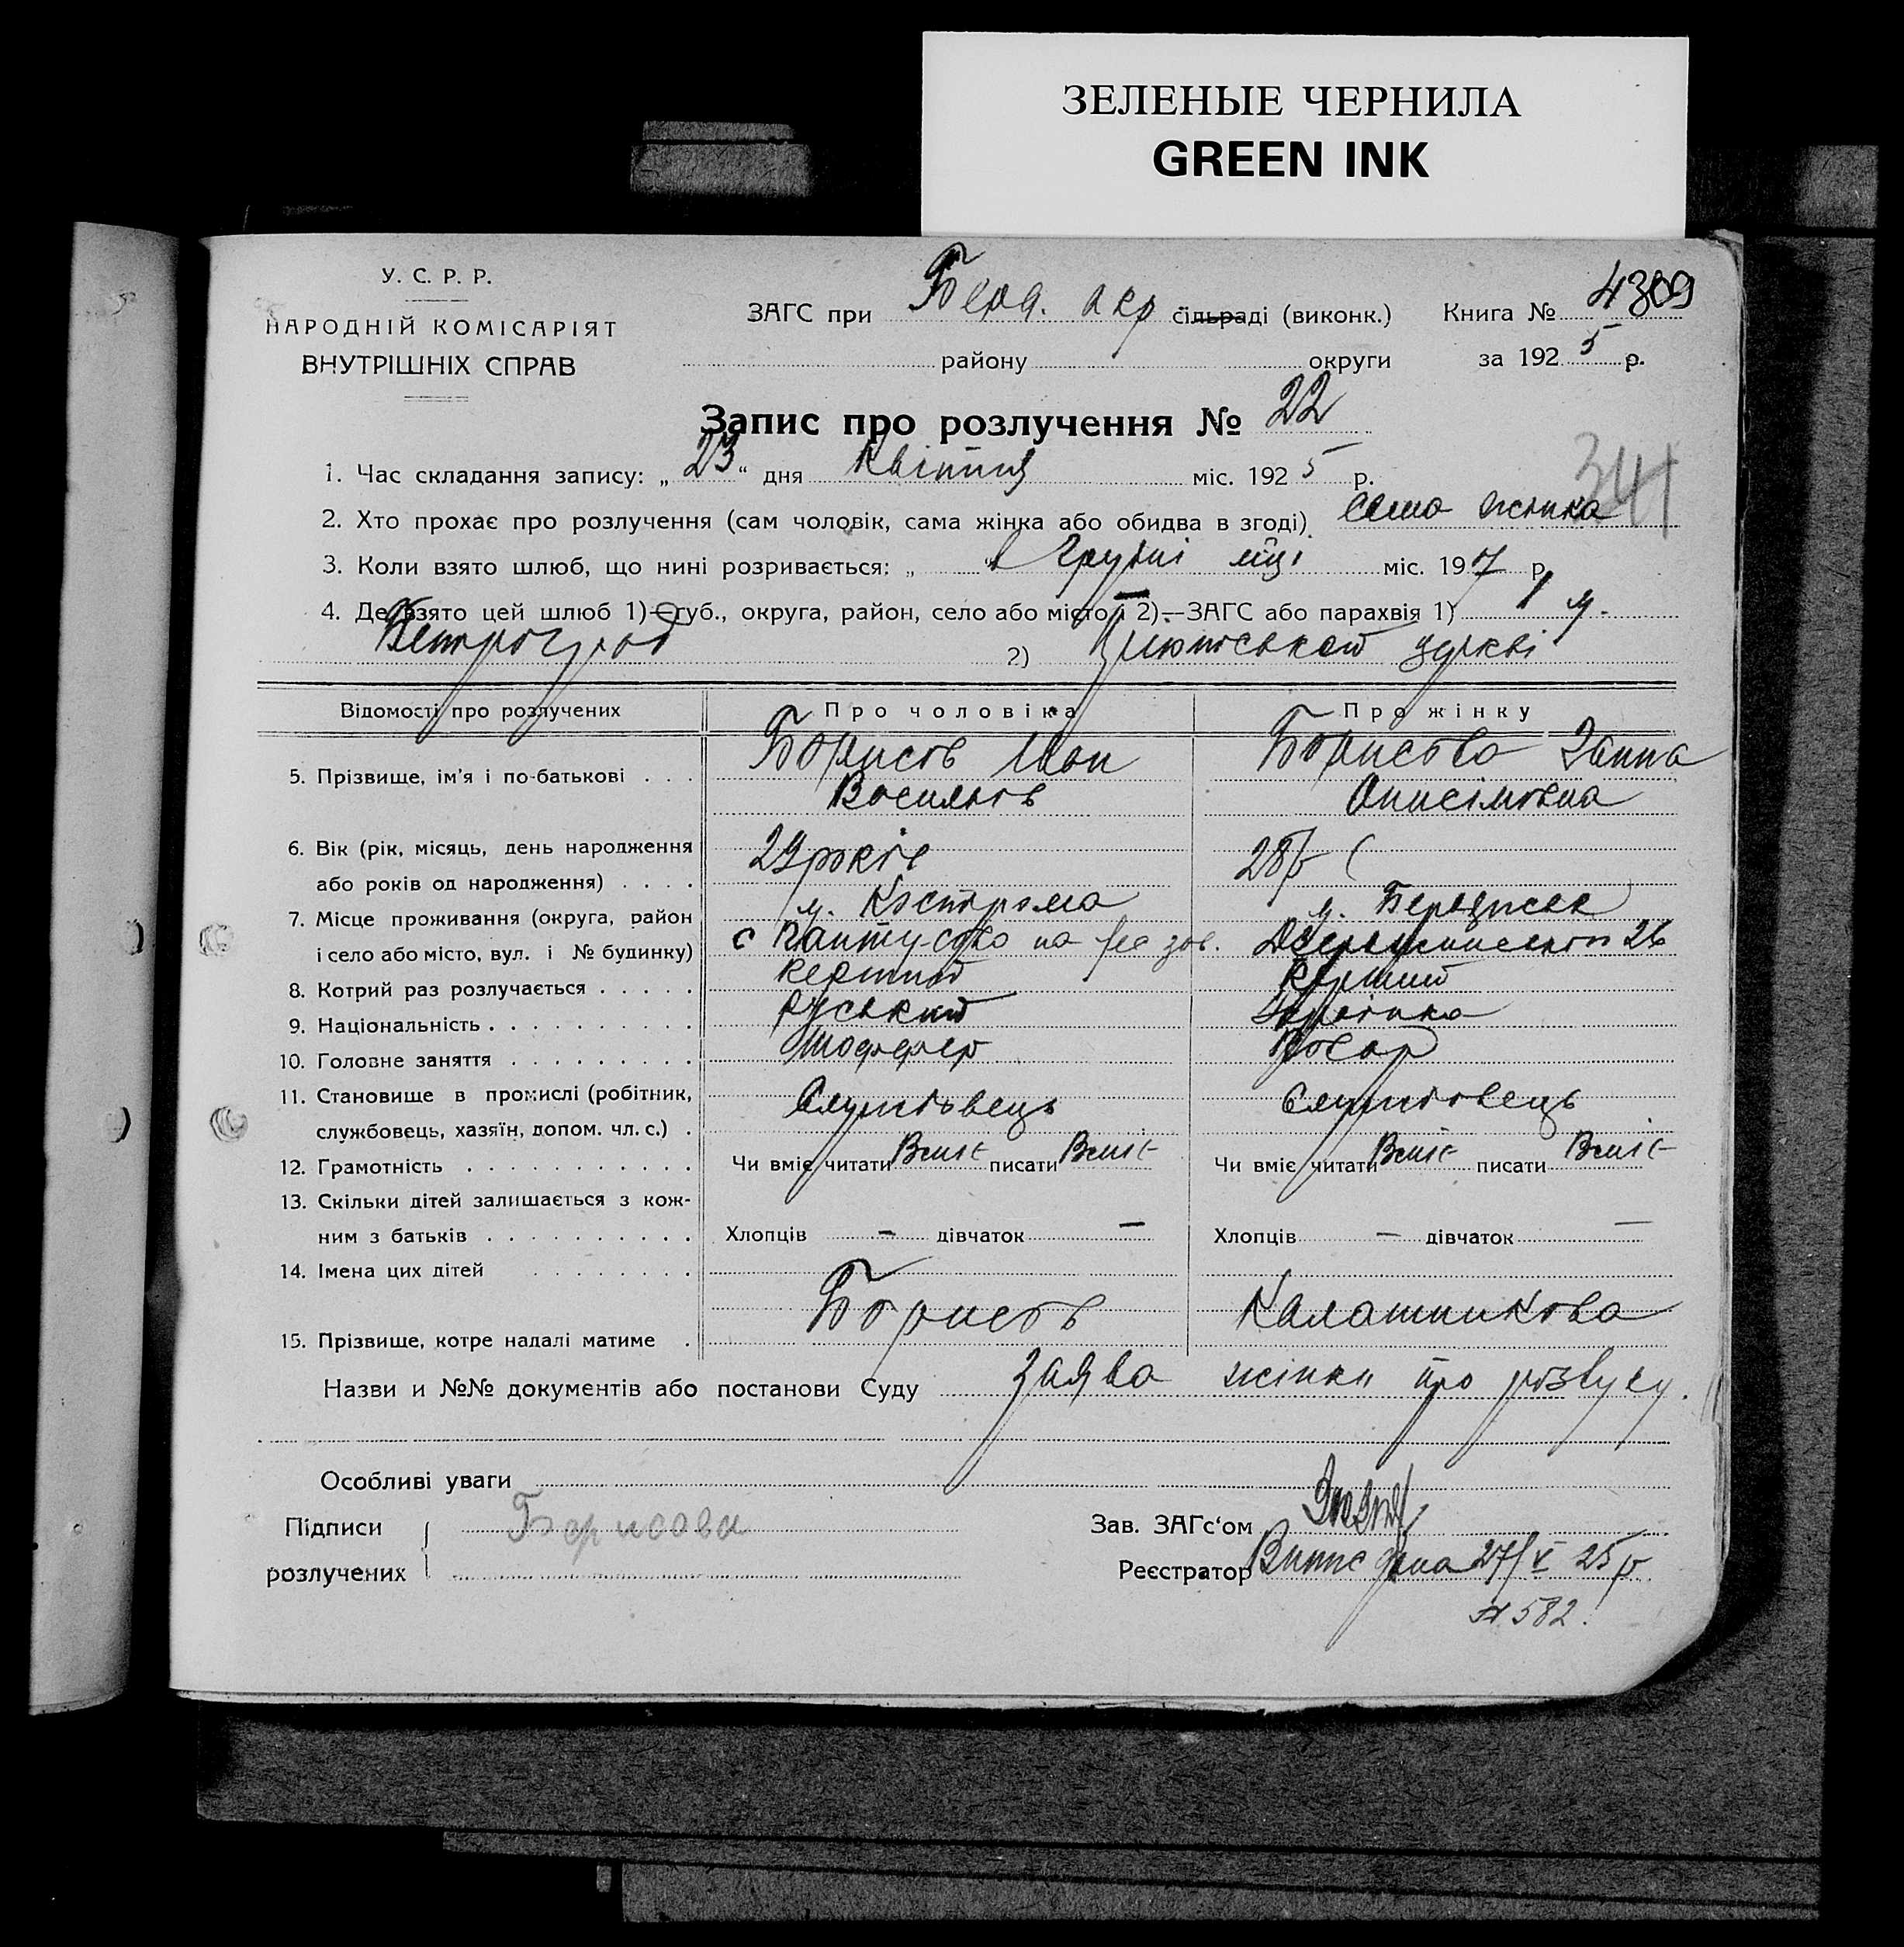 ЗЕЛЕНЫЕ ЧЕРНИЛА
GREEN INK
У. С. Р. Р.
НАРОДНІЙ КОМІСАРІЯТ
ВНУТРІШНІХ СПРАВ
ЗАГС при Берд. окр сільраді (виконк.) Книга № 4309
району округи за 1925 р.
Запис про розлучення № 22
341
1. Час складання запису: „23“ дня Квітня міс. 1925 р.
2. Хто прохає про розлучення (сам чоловік, сама жінка або обидва в згоді) сама жінка
3. Коли взято шлюб, що нині розривається: „ “ в Грудні міс. 1917 р.
4. Де взято цей шлюб 1)—губ., округа, район, село або місто і 2)—ЗАГС або парахвія 1) м.
Петроград 2) церкві
Відомості про розлучених Про чоловіка Про жінку
5. Прізвище, ім'я і по-батькові . . . Борисов Іван Борисова Ганна
Васильов Онисімовна
6. Вік (рік, місяць, день народження
або років од народження) . . . . 29 років 28 р
7. Місце проживання (округа, район м. Кострома м. Бердичев
і село або місто, вул. і № будинку) на 26
8. Котрий раз розлучається . . . . . перший перший
9. Національність . . . . . . . . . . руський
10. Головне заняття . . . . . . . . . Шоффер
11. Становище в промислі (робітник,
службовець, хазяїн, допом. чл. с.) . Службовець Службовець
12. Грамотність . . . . . . . . . . . Чи вміє читати Вміє писати Вміє Чи вміє читати Вміє писати Вміє
13. Скільки дітей залишається з кож-
ним з батьків . . . . . . . . . . Хлопців — дівчаток — Хлопців — дівчаток —
14. Імена цих дітей . . . . . . . .
15. Прізвище, котре надалі матиме . Борисов Калашникова
Назви и №№ документів або постанови Суду заява жінки про розвуку.
Особливі уваги
Підписи Борисова Зав. ЗАГс‘ом
розлучених Реєстратор 27/V 25 р
№ 582.